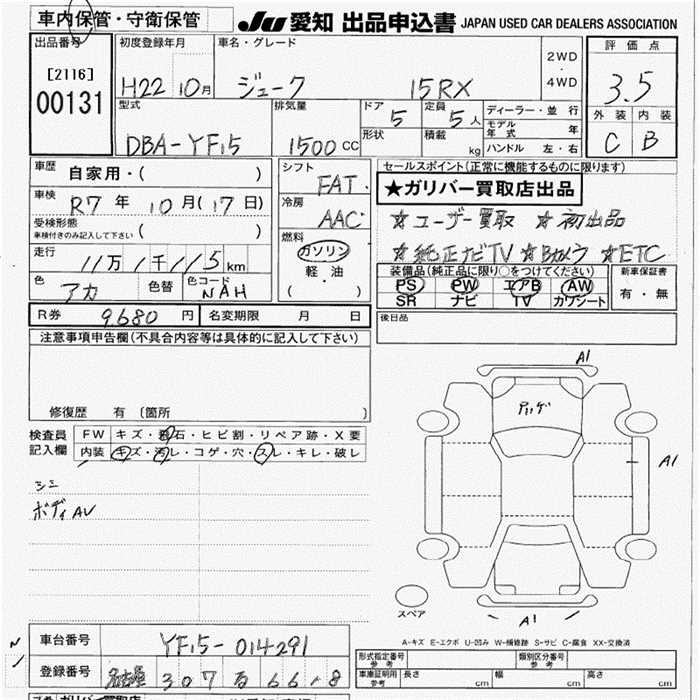 車内保管・守衛保管
JU 愛知 出品申込書 JAPAN USED CAR DEALERS ASSOCIATION
出品番号
[2116]
00131
初度登録年月
H22 10月
車名・グレード
ジューク 15RX
2WD
・
4WD
評価点
3.5
外装 内装
C B
型式
DBA-YF15
排気量
1500 CC
ドア
5
定員
5人
形状
積載
kg
ディーラー・並行
モデル年式 年
ハンドル 左・右
車歴
自家用・( )
車検
R7年10月(17日)
受検形態
車検付きのみ記入して下さい ( )
走行
11万1千115km
色
アカ
色替
色コード
NAH
シフト
FAT
冷房
AAC
燃料
ガソリン
・
軽・油
( )
セールスポイント(正常に機能するものに限ります)
★ガリバー買取店出品
☆ユーザー買取 ☆初出品
☆純正ナビTV ☆Bカメラ ☆ETC
装備品(純正品に限り○をつけてください)
PS PW エアB AW
SR ナビ TV カワシート
新車保証書
有・無
R券 9,680円 名変期限 月 日
後日品
注意事項申告欄(不具合内容等は具体的に記入して下さい)
修復歴 有 〔箇所 〕
検査員
記入欄
FW キズ・飛石・ヒビ割・リペア跡・X要
内装 キズ・汚レ・コゲ・穴・スレ・キレ・破レ
シミ
ボディAV
A1
A1
A1
スペア
A-キズ E-エクボ U-凹み W-補修跡 S-サビ C-腐食 XX-交換済
車台番号 YF15-014291
登録番号 名古屋 307
形式指定番号
参考
類別区分番号
参考
車庫証明用
参考
長さ cm 幅 cm 高さ cm
ガリバー買取店